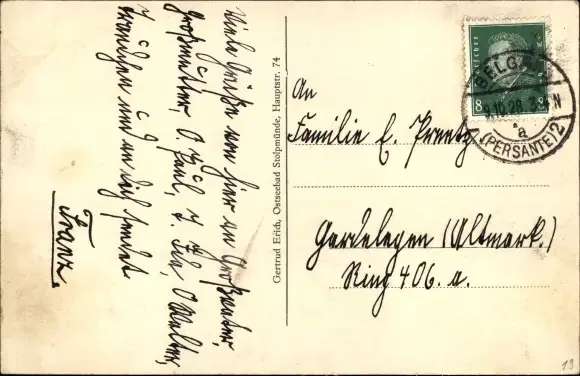 Viele Grüße von hier an Großvater,
Großmutter, O. Paul, T. O Walter,
und an dich sendet
Franz.
Gertrud Erich, Ostseebad Stolpmünde, Hauptstr. 74
An
Familie E.
Gardelegen (Altmark.)
Ring 406. a.
DEUTSCHES
8 8
BELGARD
10.28. N
a
(PERSANTE) 2
13